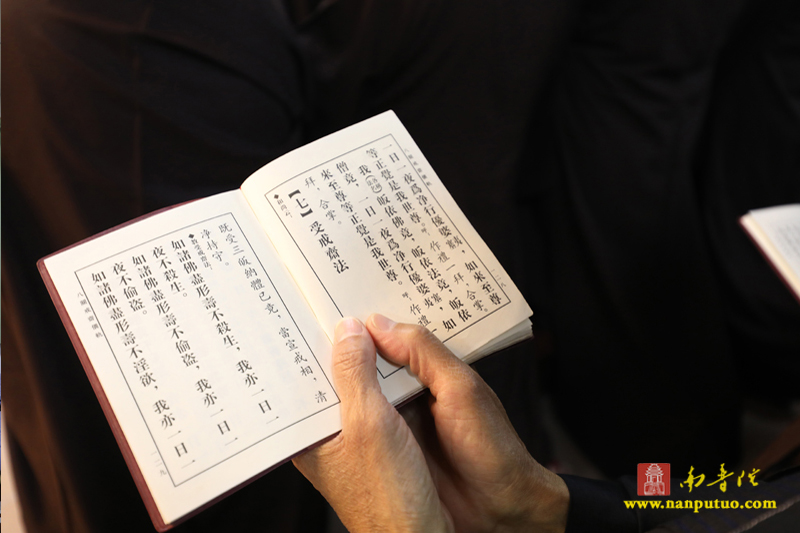 一日一夜爲淨行優婆塞，如來至尊
等正覺是我世尊。作禮一拜，合掌。
我皈依佛竟，皈依法竟，皈依
僧竟，一日一夜爲淨行優婆塞，如
來至尊等正覺是我世尊。作禮一
拜，合掌。
【七】受戒齋法
既受三皈納體已竟，當宣戒相，清
淨持守。
受戒齋法：
如諸佛盡形壽不殺生，我亦一日一
夜不殺生。
如諸佛盡形壽不偷盜，我亦一日一
夜不偷盜。
如諸佛盡形壽不淫欲，我亦一日一
八關戒齋儀軌
一一九
南普陀
www.nanputuo.com